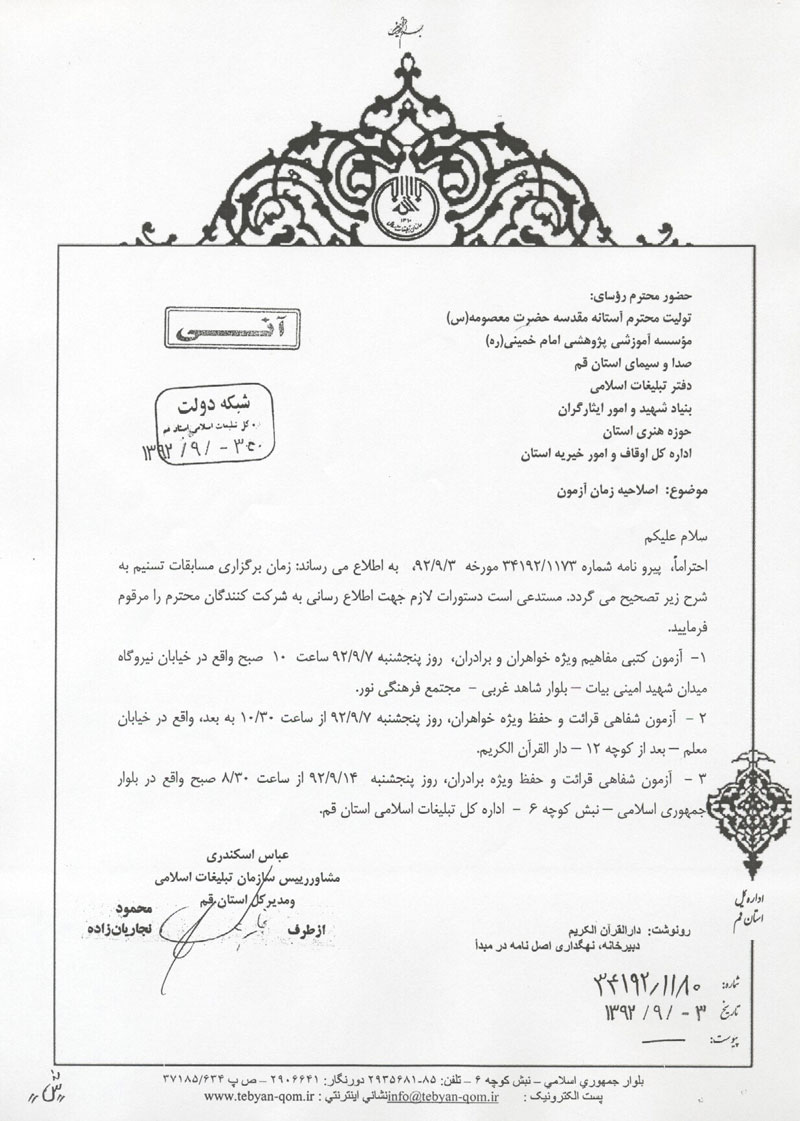 حضور محترم رؤسای:
تولیت محترم آستانه مقدسه حضرت معصومه(س)
مؤسسه آموزشی پژوهشی امام خمینی(ره)
صدا و سیمای استان قم
دفتر تبلیغات اسلامی
بنیاد شهید و امور ایثارگران
حوزه هنری استان
اداره کل اوقاف و امور خیریه استان
آنــی
شبکه دولت
کل تبلیغات اسلامی استان قم
۱۳۹۲/۹/-۳
موضوع: اصلاحیه زمان آزمون
سلام علیکم
احتراماً، پیرو نامه شماره ۳۴۱۹۲/۱۱۷۳ مورخه ۹۲/۹/۳، به اطلاع می رساند: زمان برگزاری مسابقات تسنیم به
شرح زیر تصحیح می گردد. مستدعی است دستورات لازم جهت اطلاع رسانی به شرکت کنندگان محترم را مرقوم
فرمایید.
۱- آزمون کتبی مفاهیم ویژه خواهران و برادران، روز پنجشنبه ۹۲/۹/۷ ساعت ۱۰ صبح واقع در خیابان نیروگاه
میدان شهید امینی بیات – بلوار شاهد غربی - مجتمع فرهنگی نور.
۲ - آزمون شفاهی قرائت و حفظ ویژه خواهران، روز پنجشنبه ۹۲/۹/۷ از ساعت ۱۰/۳۰ به بعد، واقع در خیابان
معلم – بعد از کوچه ۱۲ – دار القرآن الکریم.
۳ - آزمون شفاهی قرائت و حفظ ویژه برادران، روز پنجشنبه ۹۲/۹/۱۴ از ساعت ۸/۳۰ صبح واقع در بلوار
جمهوری اسلامی – نبش کوچه ۶ - اداره کل تبلیغات اسلامی استان قم.
عباس اسکندری
مشاوررییس سازمان تبلیغات اسلامی
ومدیرکل استان قم
ازطرف
محمود
نجاریان‌زاده
اداره کل
استان قم
رونوشت: دارالقرآن الکریم
دبیرخانه، نهگداری اصل نامه در مبدأ
شماره: ۳۴۱۹۲/۱۱۸۰
تاریخ ۱۳۹۲/۹/-۳
پیوست:
بلوار جمهوري اسلامي – نبش کوچه ۶ – تلفن: ۸۵-۲۹۳۵۶۸۱ دورنگار: ۲۹۰۶۶۴۱ – ص پ ۳۷۱۸۵/۶۳۴
پست الکترونیک : info@tebyan-qom.ir نشاني اینترنتي : www.tebyan-qom.ir